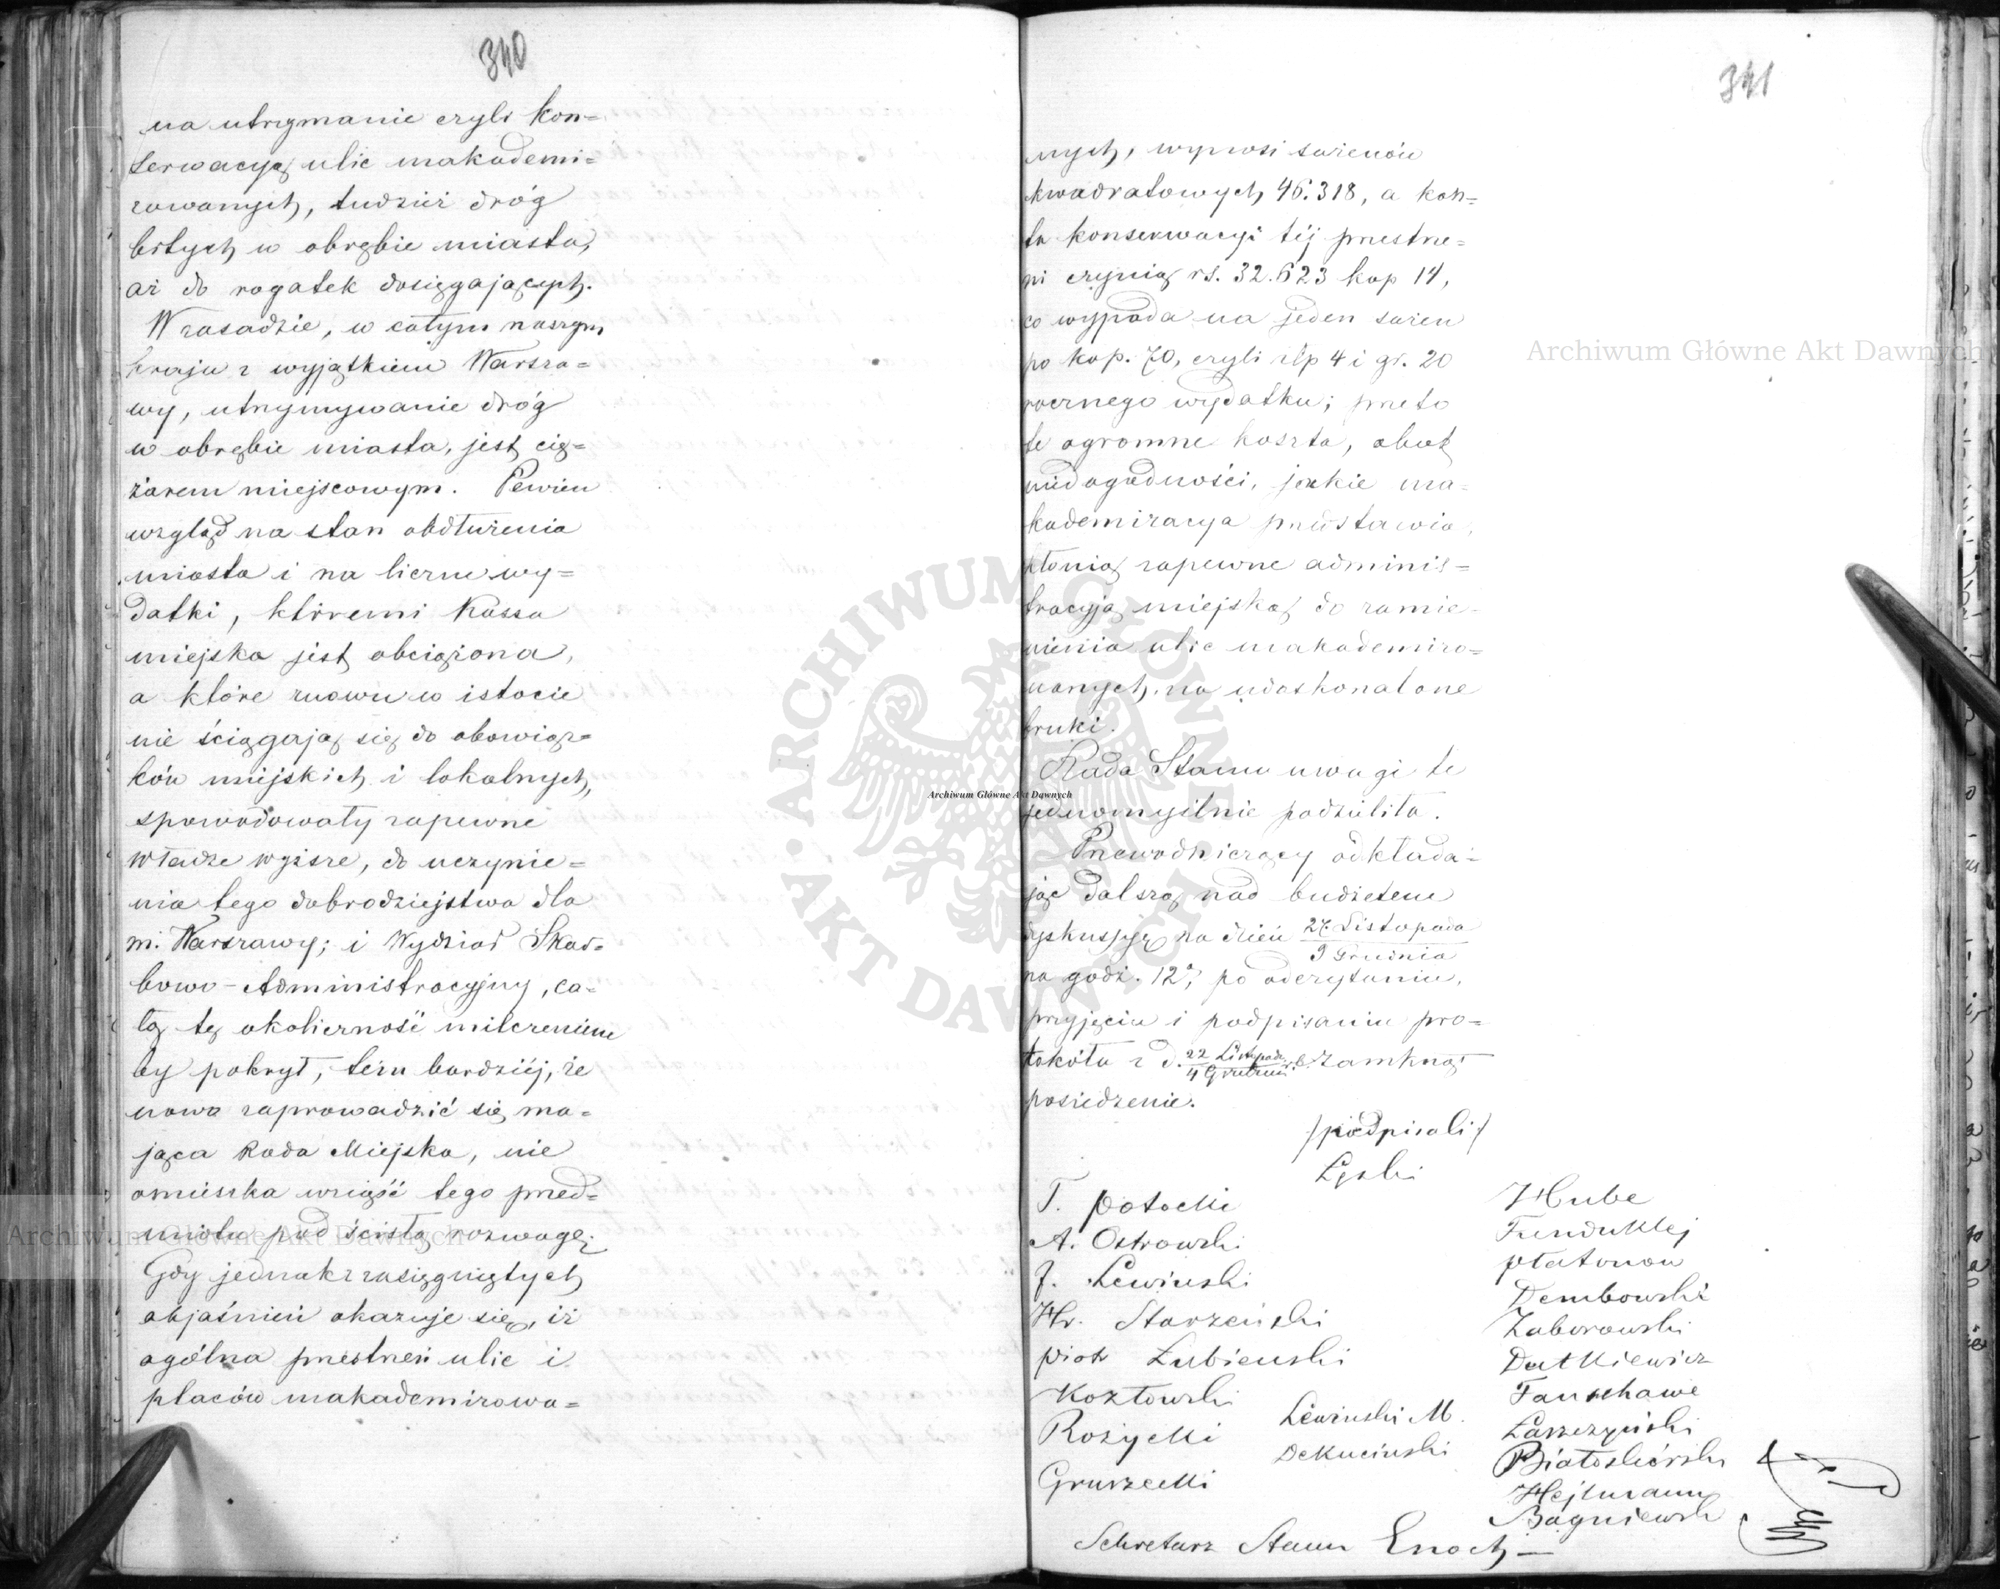 340
na utrzymanie czyli kon=
serwacyą ulic makademi=
zowanych, tudzież dróg
bitych w obrębie miasta,
aż do rogatek dosięgających.
W zasadzie, w całym naszym
kraju z wyjątkiem Warsza=
wy, utrzymywanie dróg
w obrębie miasta, jest cię=
żarem miejscowym. Pewien
wzgląd na stan obdłużenia
miasta i na liczne wy=
datki, któremi Kassa
miejska jest obciążona,
a które znowu w istocie
nie ściągają się do obowiąz=
ków miejskich i lokalnych,
spowodowały zapewne
władze wyższe, do uczynie=
nia tego dobrodziejstwa dla
m. Warszawy; i Wydział Skar=
bowo-Administracyjny, ca=
łą tę okoliczność milczeniem
by pokrył, tém bardziéj, że
nowo zaprowadzić się ma=
jąca Rada Miejska, nie
omieszka wziąść tego przed=
miotu pod ścisłą rozwagę.
Gdy jednak z zasięgniętych
objaśnień okazuje się, iż
ogólna przestrzeń ulic i
placów makademizowa=
341
nych, wynosi sażenów
kwadratowych 46.318, a kosz=
ta konserwacyi téj przestrze=
ni czynią rs. 32.623 kop 14,
co wypada na jeden sażen
po kop. 70, czyli złp 4 i gr. 20
rocznego wydatku; przeto
te ogromne koszta, obok
niedogodności, jakie ma=
kademizacya przedstawia,
skłonią zapewne adminis=
tracyją miejską do zamie=
nienia ulic makademizo=
wanych, na udoskonalone
bruki.
Rada Stanu uwagi te
jednomyślnie podzieliła.
Przewodniczący odkłada=
jąc dalszą nad budżetem
dyskussyję na dzień 27 Listopada
9 Grudnia
na godź. 12ą, po odczytaniu,
przyjęciu i podpisaniu pro=
tokółu z d. 22 Listopada
4 Grudnia zamknął
posiedzenie.
/podpisali/
Łęski
T. Potocki
A. Ostrowski
J. Lewiński
Hr. Starzeński
Piotr Łubieński
Kozłowski
Różycki
Gruszecki
Lewiński M.
Dekuciński
Hube
Funduklej
Płatonow
Dembowski
Zaborowski
Dutkiewicz
Fanshawe
Łaszczyński
Białoskórski
Hejlmann
Bagniewski
Sekretarz Stanu Enoch
Archiwum Główne Akt Dawnych
Archiwum Główne Akt Dawnych
Archiwum Główne Akt Dawnych
ARCHIWUM GŁÓWNE AKT DAWNYCH